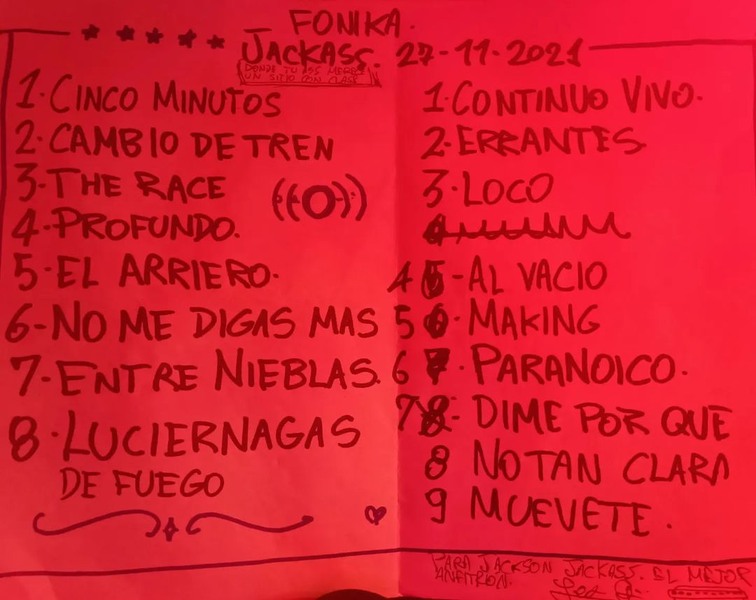 FONIKA.
JACKASS. 27-11-2021
DONDE TU ASS MERECE
UN SITIO CON CLASE
1. CINCO MINUTOS
2. CAMBIO DE TREN
3. THE RACE
((O))
4. PROFUNDO.
5- EL ARRIERO.
6- NO ME DIGAS MAS
7- ENTRE NIEBLAS.
8. LUCIERNAGAS
DE FUEGO
1. CONTINUO VIVO.
2. ERRANTES
3. LOCO
4 - AL VACIO
5 - MAKING
6 . PARANOICO.
7 - DIME POR QUE
8 NO TAN CLARA
9 MUEVETE.
PARA JACKSON JACKASS. EL MEJOR
ANFITRION.